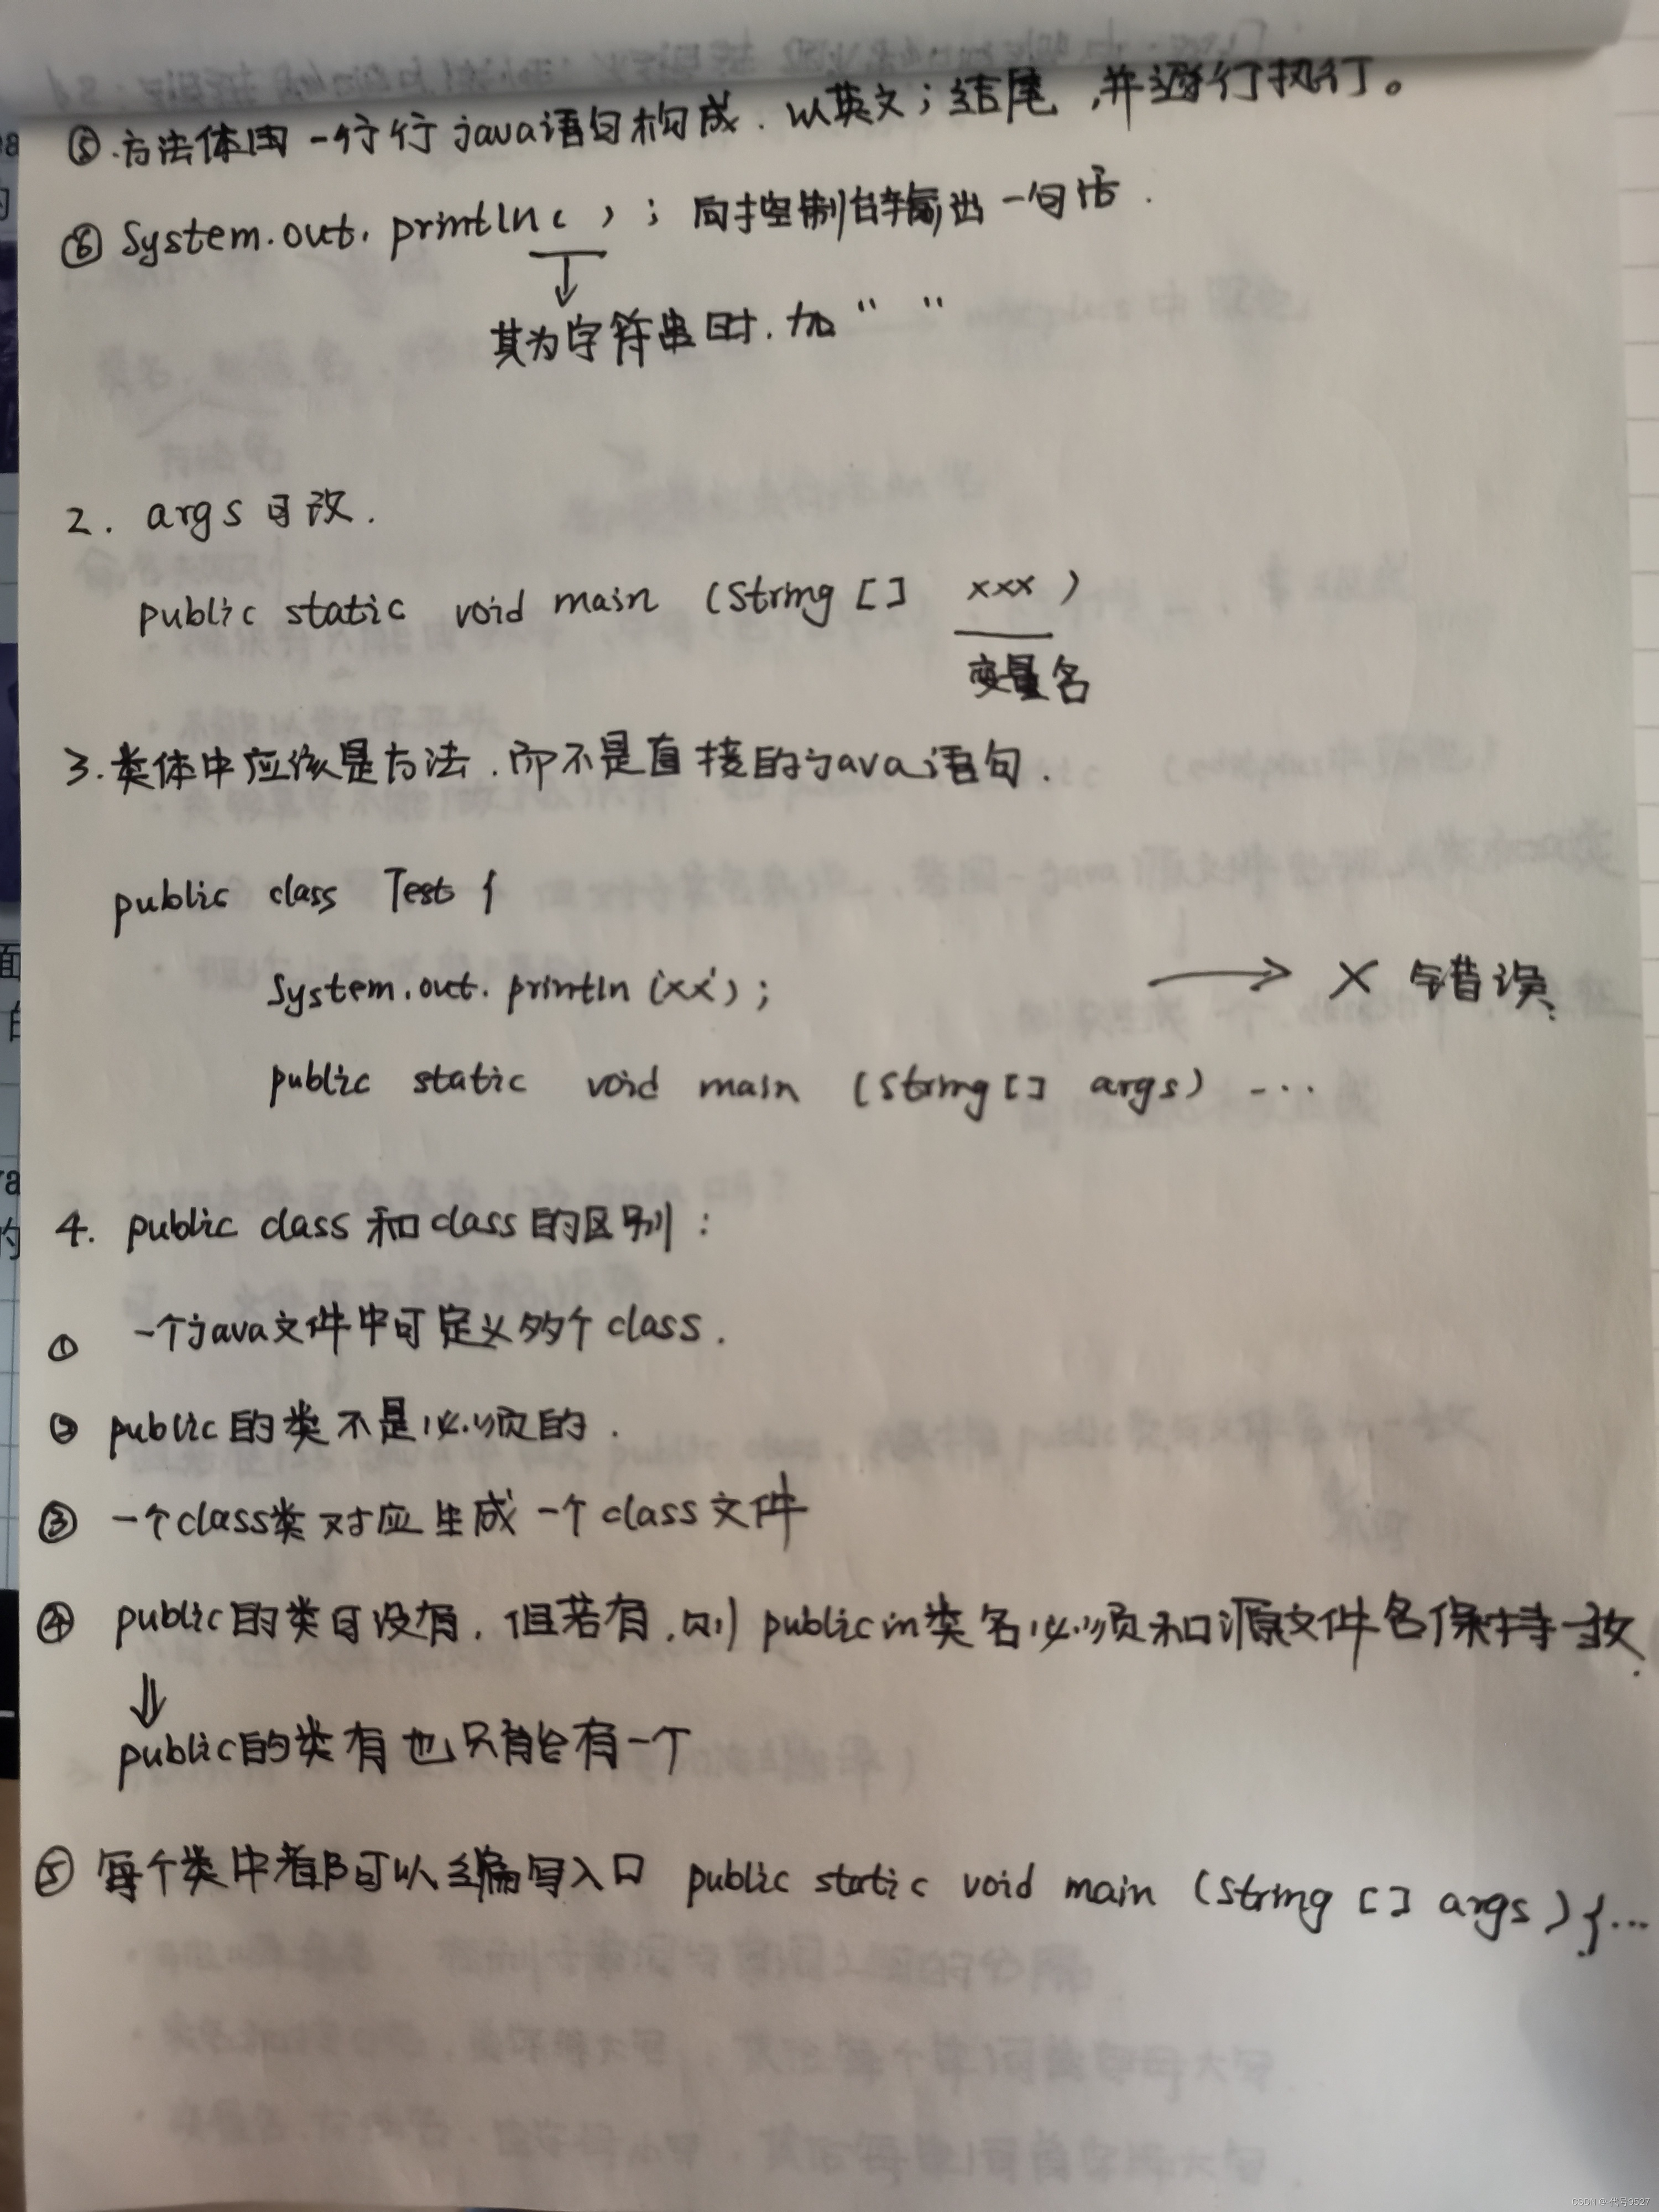 ⑤.方法体由一行行java语句构成.以英文;结尾,并逐行执行。
⑥ System.out.println( ); 向控制台输出一句话.
其为字符串时.加“ ”
2. args可改.
public static void main (String [] xxx)
变量名
3.类体中应该是方法.而不是直接的java语句.
public class Test {
System.out.println('xx'); → × 错误.
public static void main (String [] args) ...
4. public class和class的区别:
① 一个java文件中可定义多个class.
② public的类不是必须的.
③ 一个class类对应生成一个class文件
④ public的类可没有,但若有,则public的类名必须和源文件名保持一致.
⇓
public的类有也只能有一个
⑤ 每个类中都可以编写入口 public static void main (String [] args) {...
CSDN @代号9527